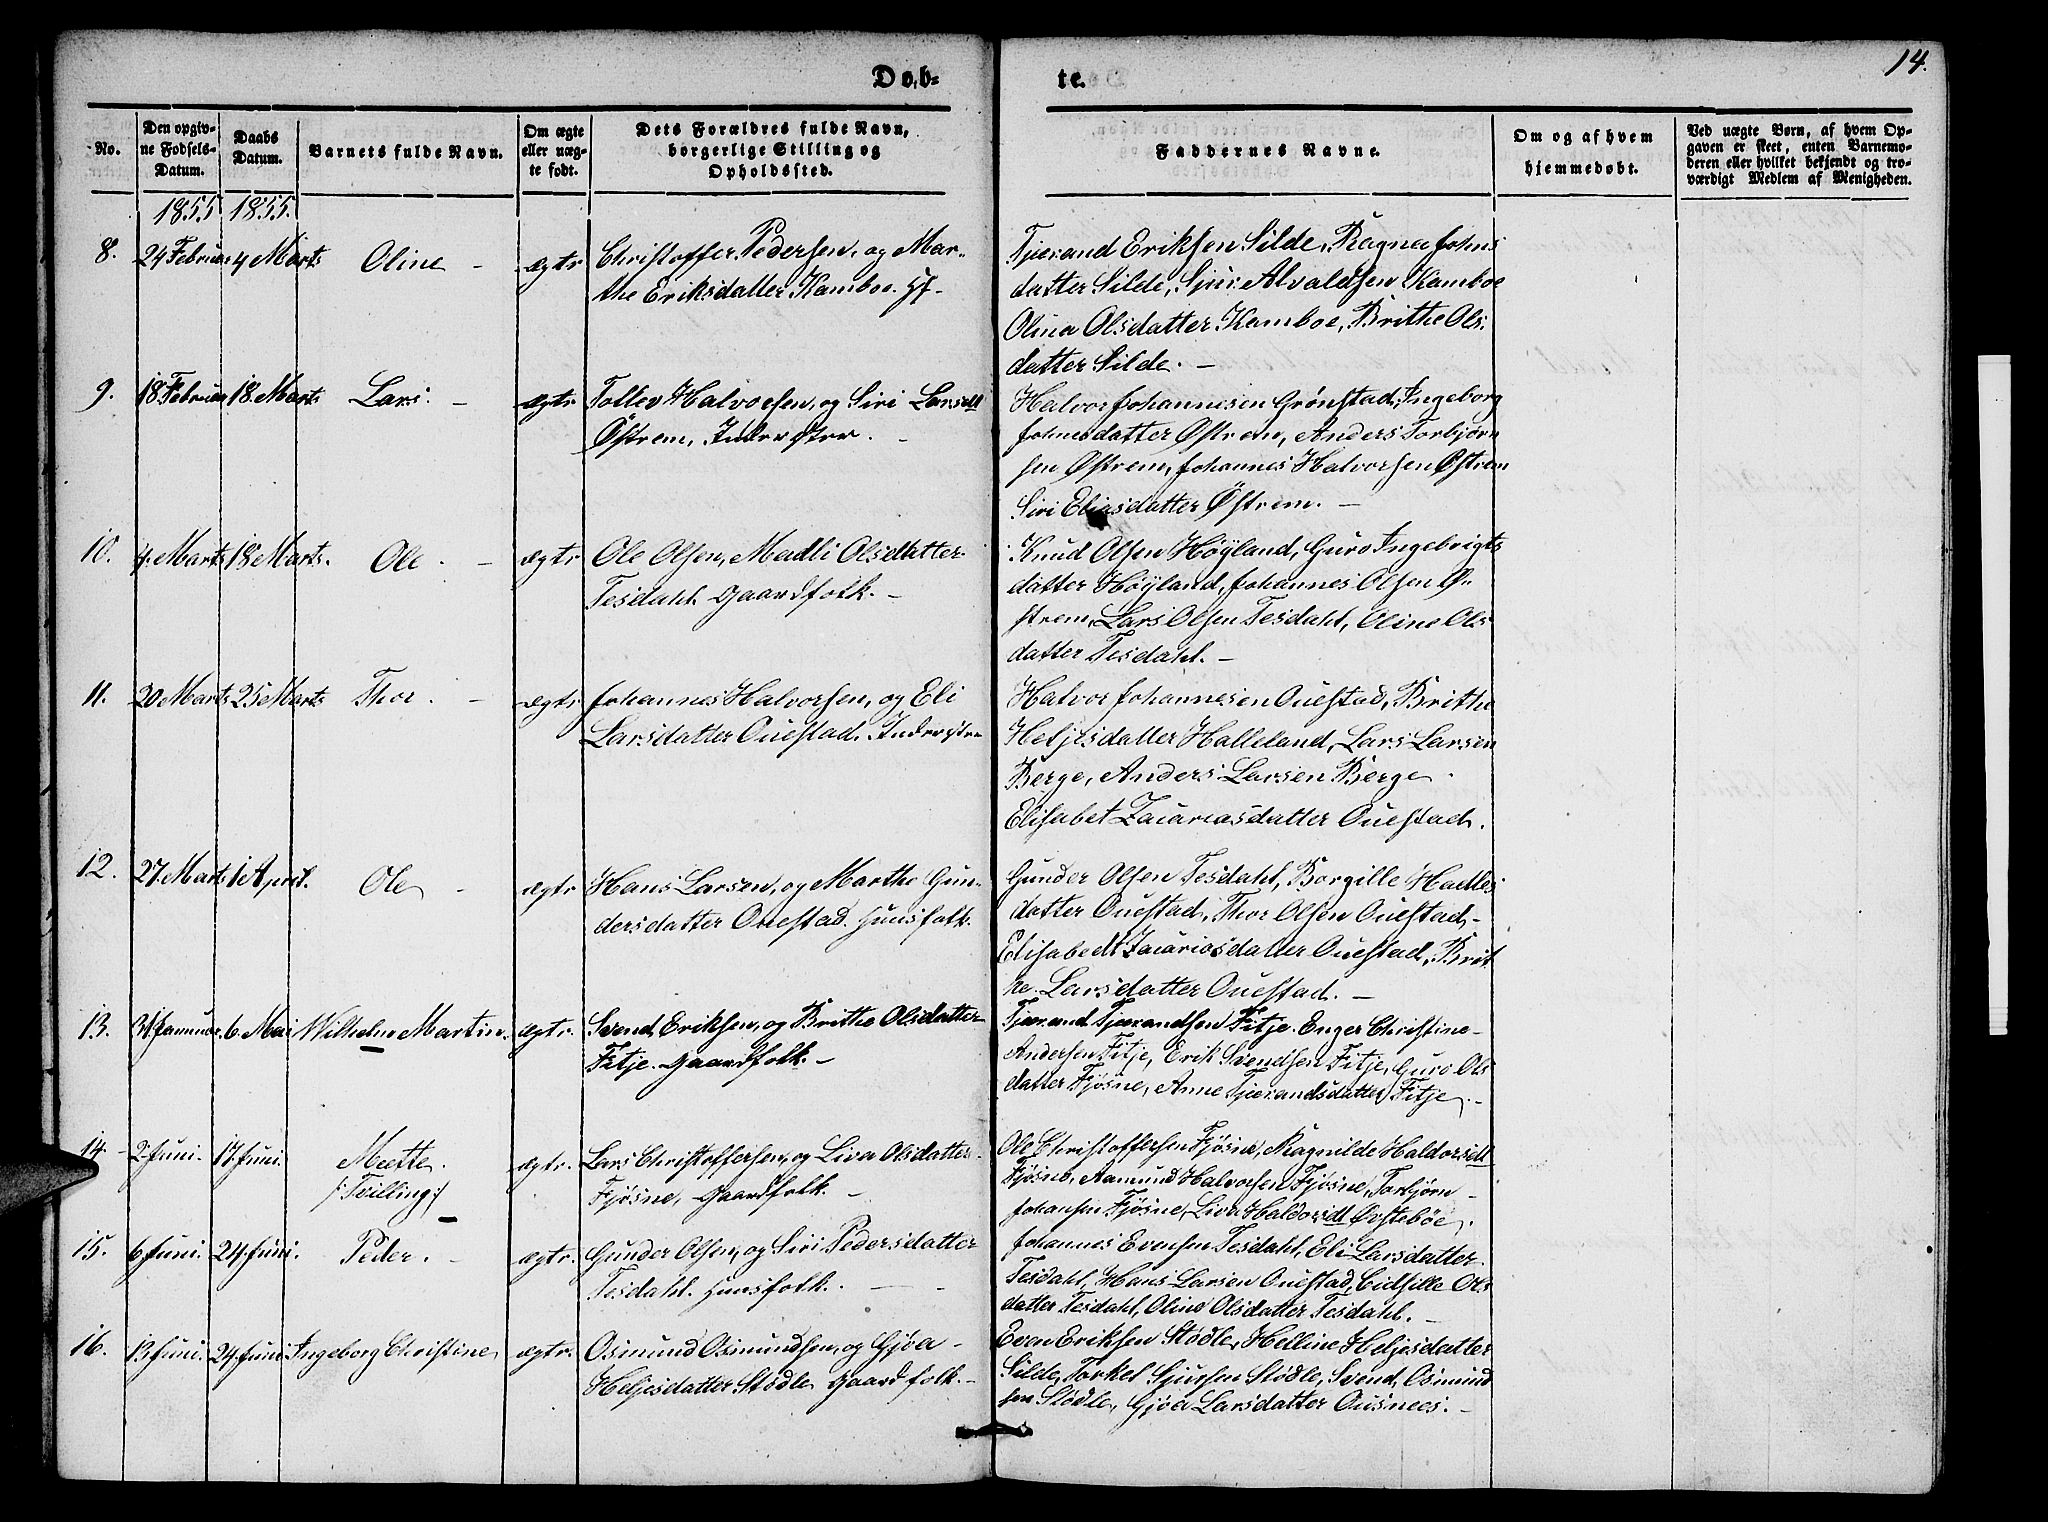 Døb-
te.
14.
No.
Den opgiv-
ne Fødsels-
Datum.
Daabs
Datum.
Barnets fulde Navn.
Om ægte
eller uæg-
te født.
Dets Forældres fulde Navn,
borgerlige Stilling og
Opholdssted.
Faddernes Navne.
Om og af hvem
hjemmedøbt.
Ved uægte Børn, af hvem Op-
gaven er skeet, enten Barnemo-
deren eller hvilket bekjendt og tro-
værdigt Medlem af Menigheden.
1855 1855.
8. 24 Februar 4 Marts Oline - ægte Christoffer Pedersen, og Mar-
the Eriksdatter Kamboe.
Tjerand Eriksen Silde, Ragna Johns
datter Silde, Sjur Alvaldsen Kamboe
Olina Olsdatter Kamboe, Brithe Ols
datter Silde. -
9. 18 Februar 18 Marts Lars. - ægte Tollev Halvorsen, og Siri Larsdtt
Østrem, Inderster. -
Halvor Johannesen Grønstad, Ingeborg
Johnesdatter Østrem, Anders Torbjørn
sen Østrem, Johannes Halvorsen Østrem
Siri Eliasdatter Østrem. -
10. 4 Marts 18 Marts. Ole. - ægte Ole Olsen, Madli Olsdatter
Tesdahl. Gaardfolk. -
Knud Olsen Höyland, Guro Ingebrigts
datter Höyland, Johannes Olsen Ø-
strem, Lars Olsen Tesdahl, Oline Ols
datter Tesdahl. -
11. 20 Marts 25 Marts Thor. - ægte Johannes Halvorsen, og Eli
Larsdatter Ouestad.
Halvor Johannesen Ouestad, Brithe
Heljesdatter Halleland, Lars Larsen
Berge, Anders Larsen Berge.
Elisabet Zacariasdatter Ouestad.
12. 27 Marts 1 April. Ole - ægte Hans Larsen, og Marthe Gun-
dersdatter Ouestad. Huusfolk.
Gunder Olsen Tesdahl, Borgille Hadles
datter Ouestad, Thor Olsen Ouestad,
Elisabedt Zacariasdatter Ouestad, Brit
he Larsdatter Ouestad. -
13. 31 Januar. 6 Mai Wilhelm Martin. ægte. Svend Eriksen, og Brithe Olsdatter
Fitje. Gaardfolk. -
Tjerand Tjerandsen Fitje. Enger Christine
Andersen Fitje, Erik Svendsen Fitje, Guro Ols
datter Fjøsne, Anne Tjerandsdatter Fitje.
14. 2 Juni. 17 Juni. Mette. ægte. Lars Christoffersen, og Liva Olsdatter
/: Tvilling :/ Fjøsne, Gaardfolk. -
Ole Christoffersen Fjøsne, Ragnilde Haldorsdtt
Fjøsne, Aamund Halvorsen Fjøsne, Torbjørn
Johansen Fjøsne, Liva Haldorsdtt Ørstebøe.
15. 6 Juni. 24 Juni. Peder. - ægte. Gunder Olsen, og Siri Pedersdatter
Tesdahl. Huusfolk. -
Johannes Evensen Tesdahl, Eli Larsdatter
Tesdahl, Hans Larsen Ouestad, Cidsille Ols
datter Tesdahl, Oline Olsdatter Tesdahl. -
16. 13 Juni. 24 Juni Ingeborg Christine ægte. Osmund Osmundsen, og Gjøa -
Heljesdatter Stødle Gaardfolk. -
Even Eriksen Stødle, Helline Heljesdatter
Silde, Torkel Sjursen Stødle, Svend Osmund
sen Stødle, Gjøa Larsdatter Ousnees. -